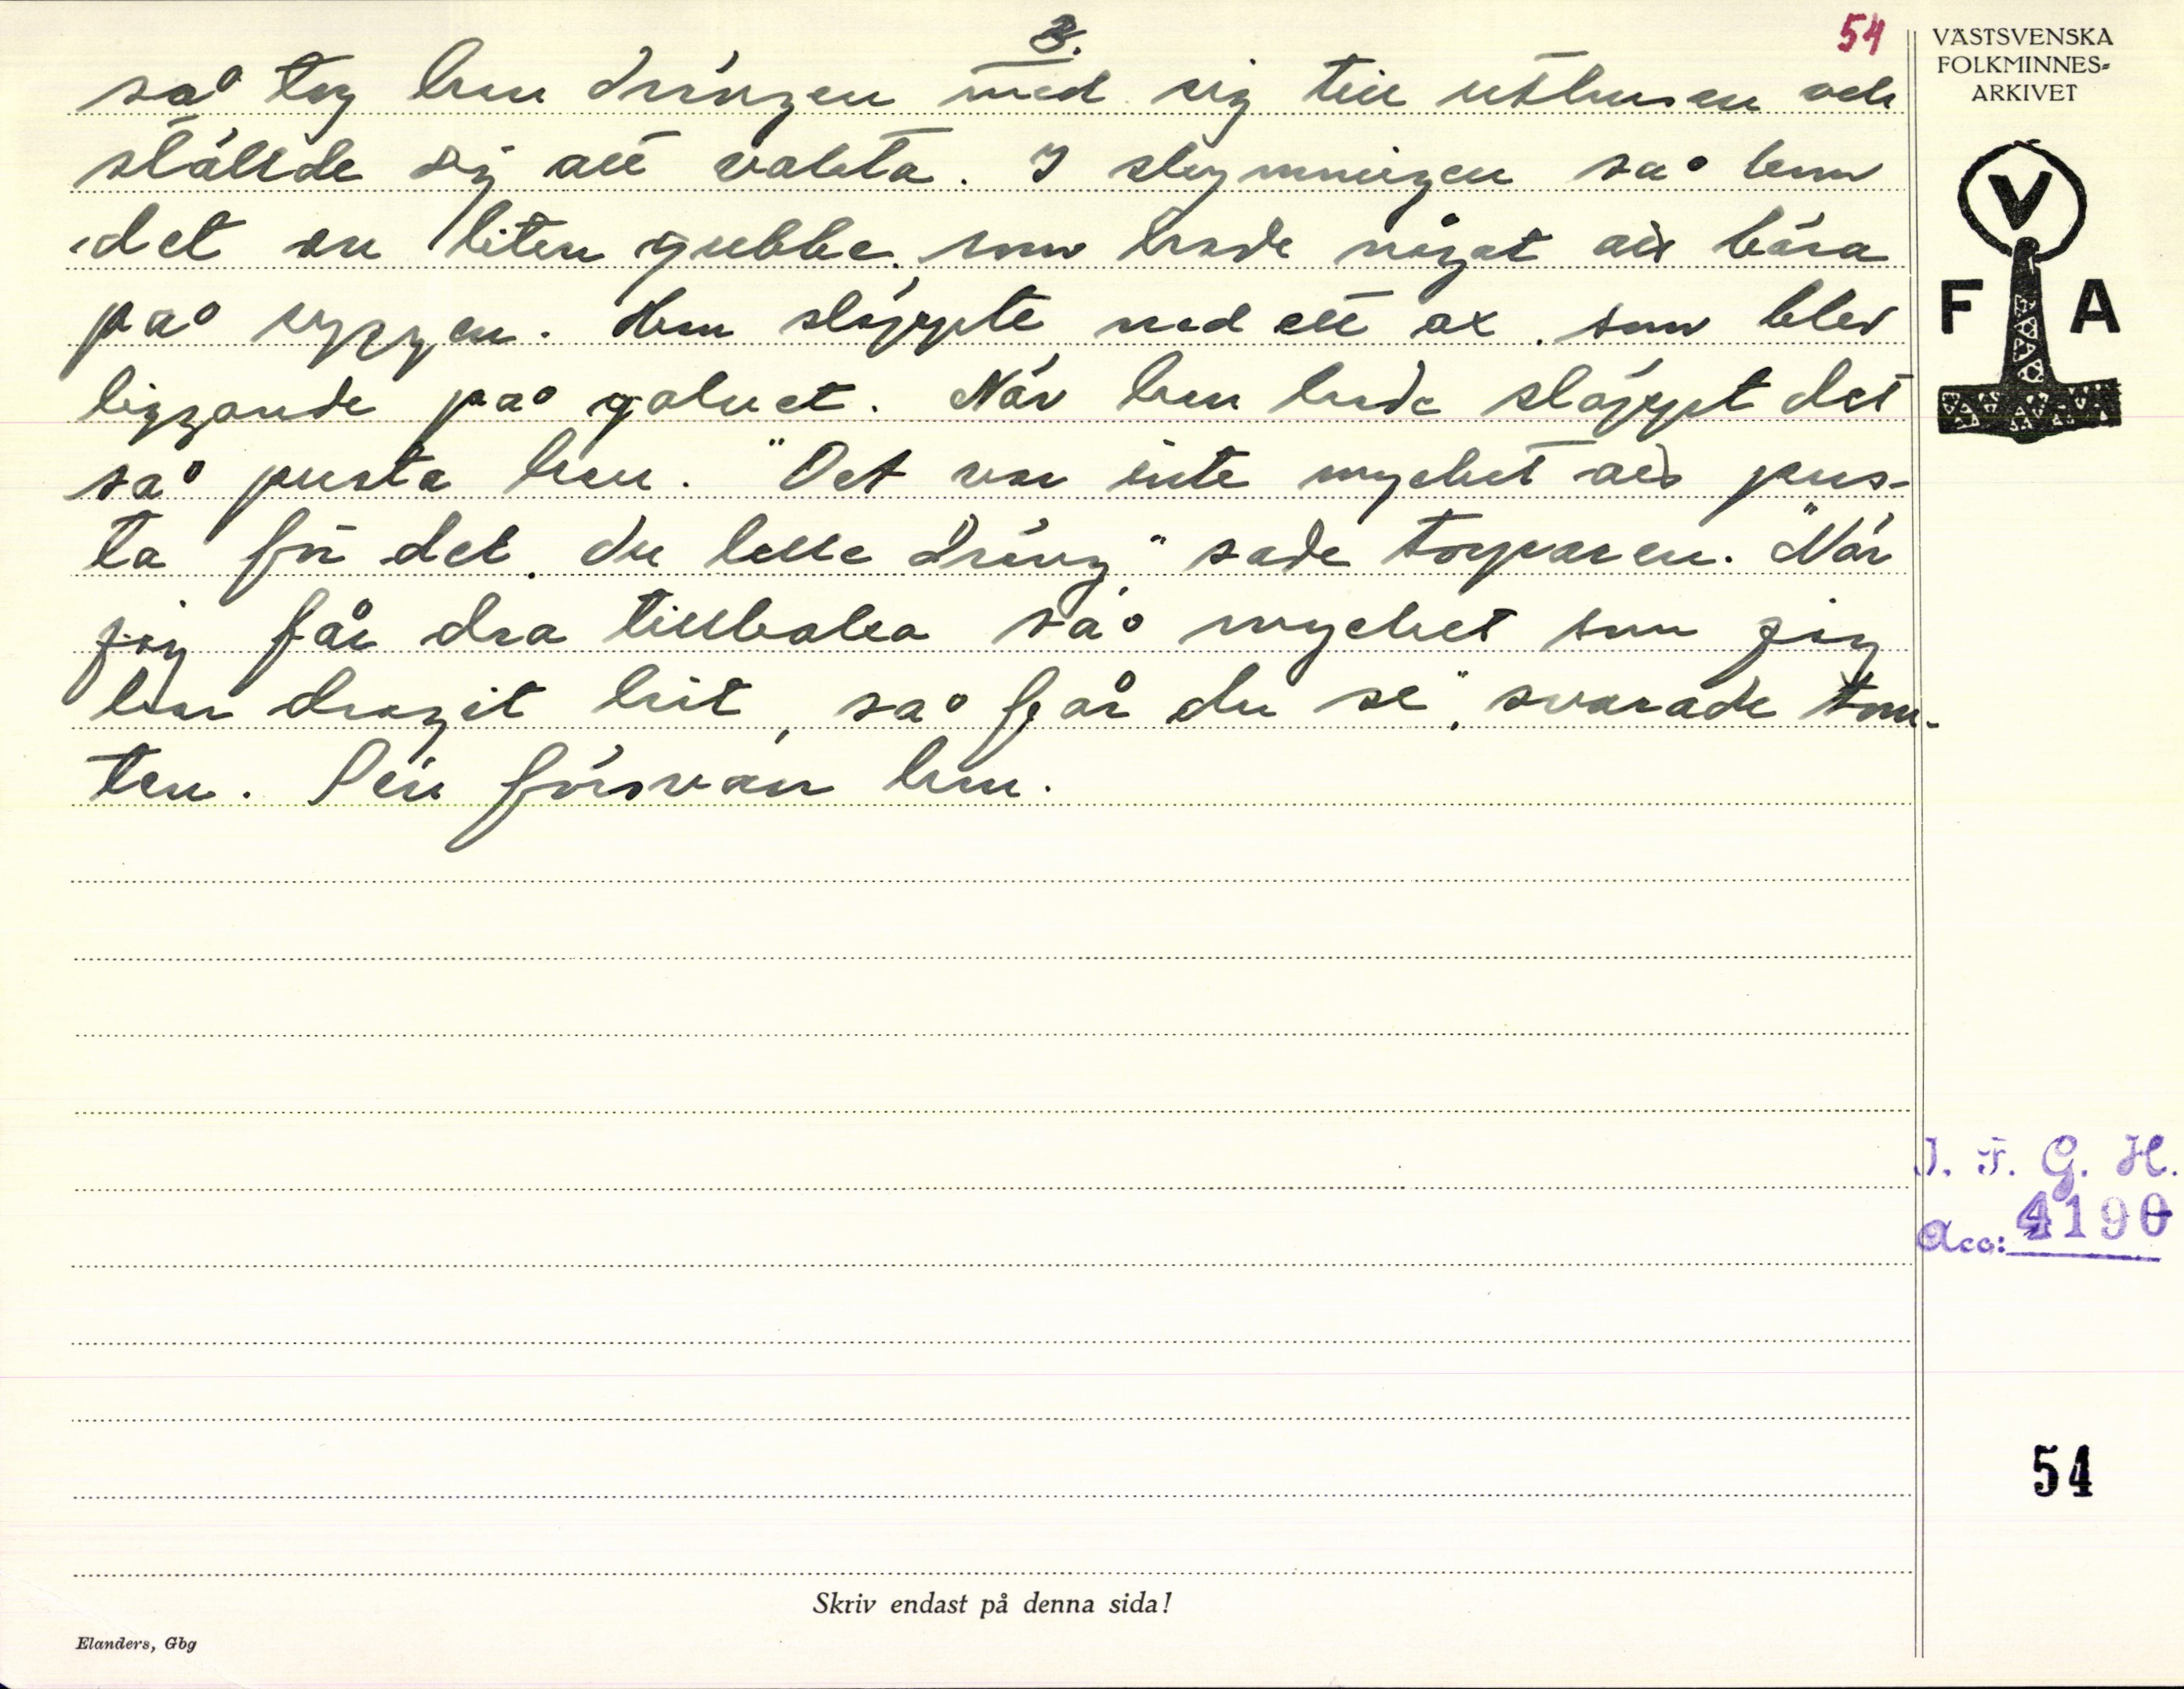 3.
54
så tog han drängen med sig till uthusen och
ställde sig att vakta. I skymningen så kom
det en liten gubbe, som hade något att bära
på ryggen. Han släppte ned ett ax, som blev
liggande på golvet. När han hade släppt det
så pusta han. "Det var inte mycket att pus-
ta för det, du lille dräng," sade torparen. "När
jag får dra tillbaka så mycket som jag
har dragit hit, så får du se", svarade tom-
ten. Sen försvan han.
VÄSTSVENSKA
FOLKMINNES-
ARKIVET
V
F A
I. F. G. H.
Acc: 4190
54
Skriv endast på denna sida!
Elanders, Gbg